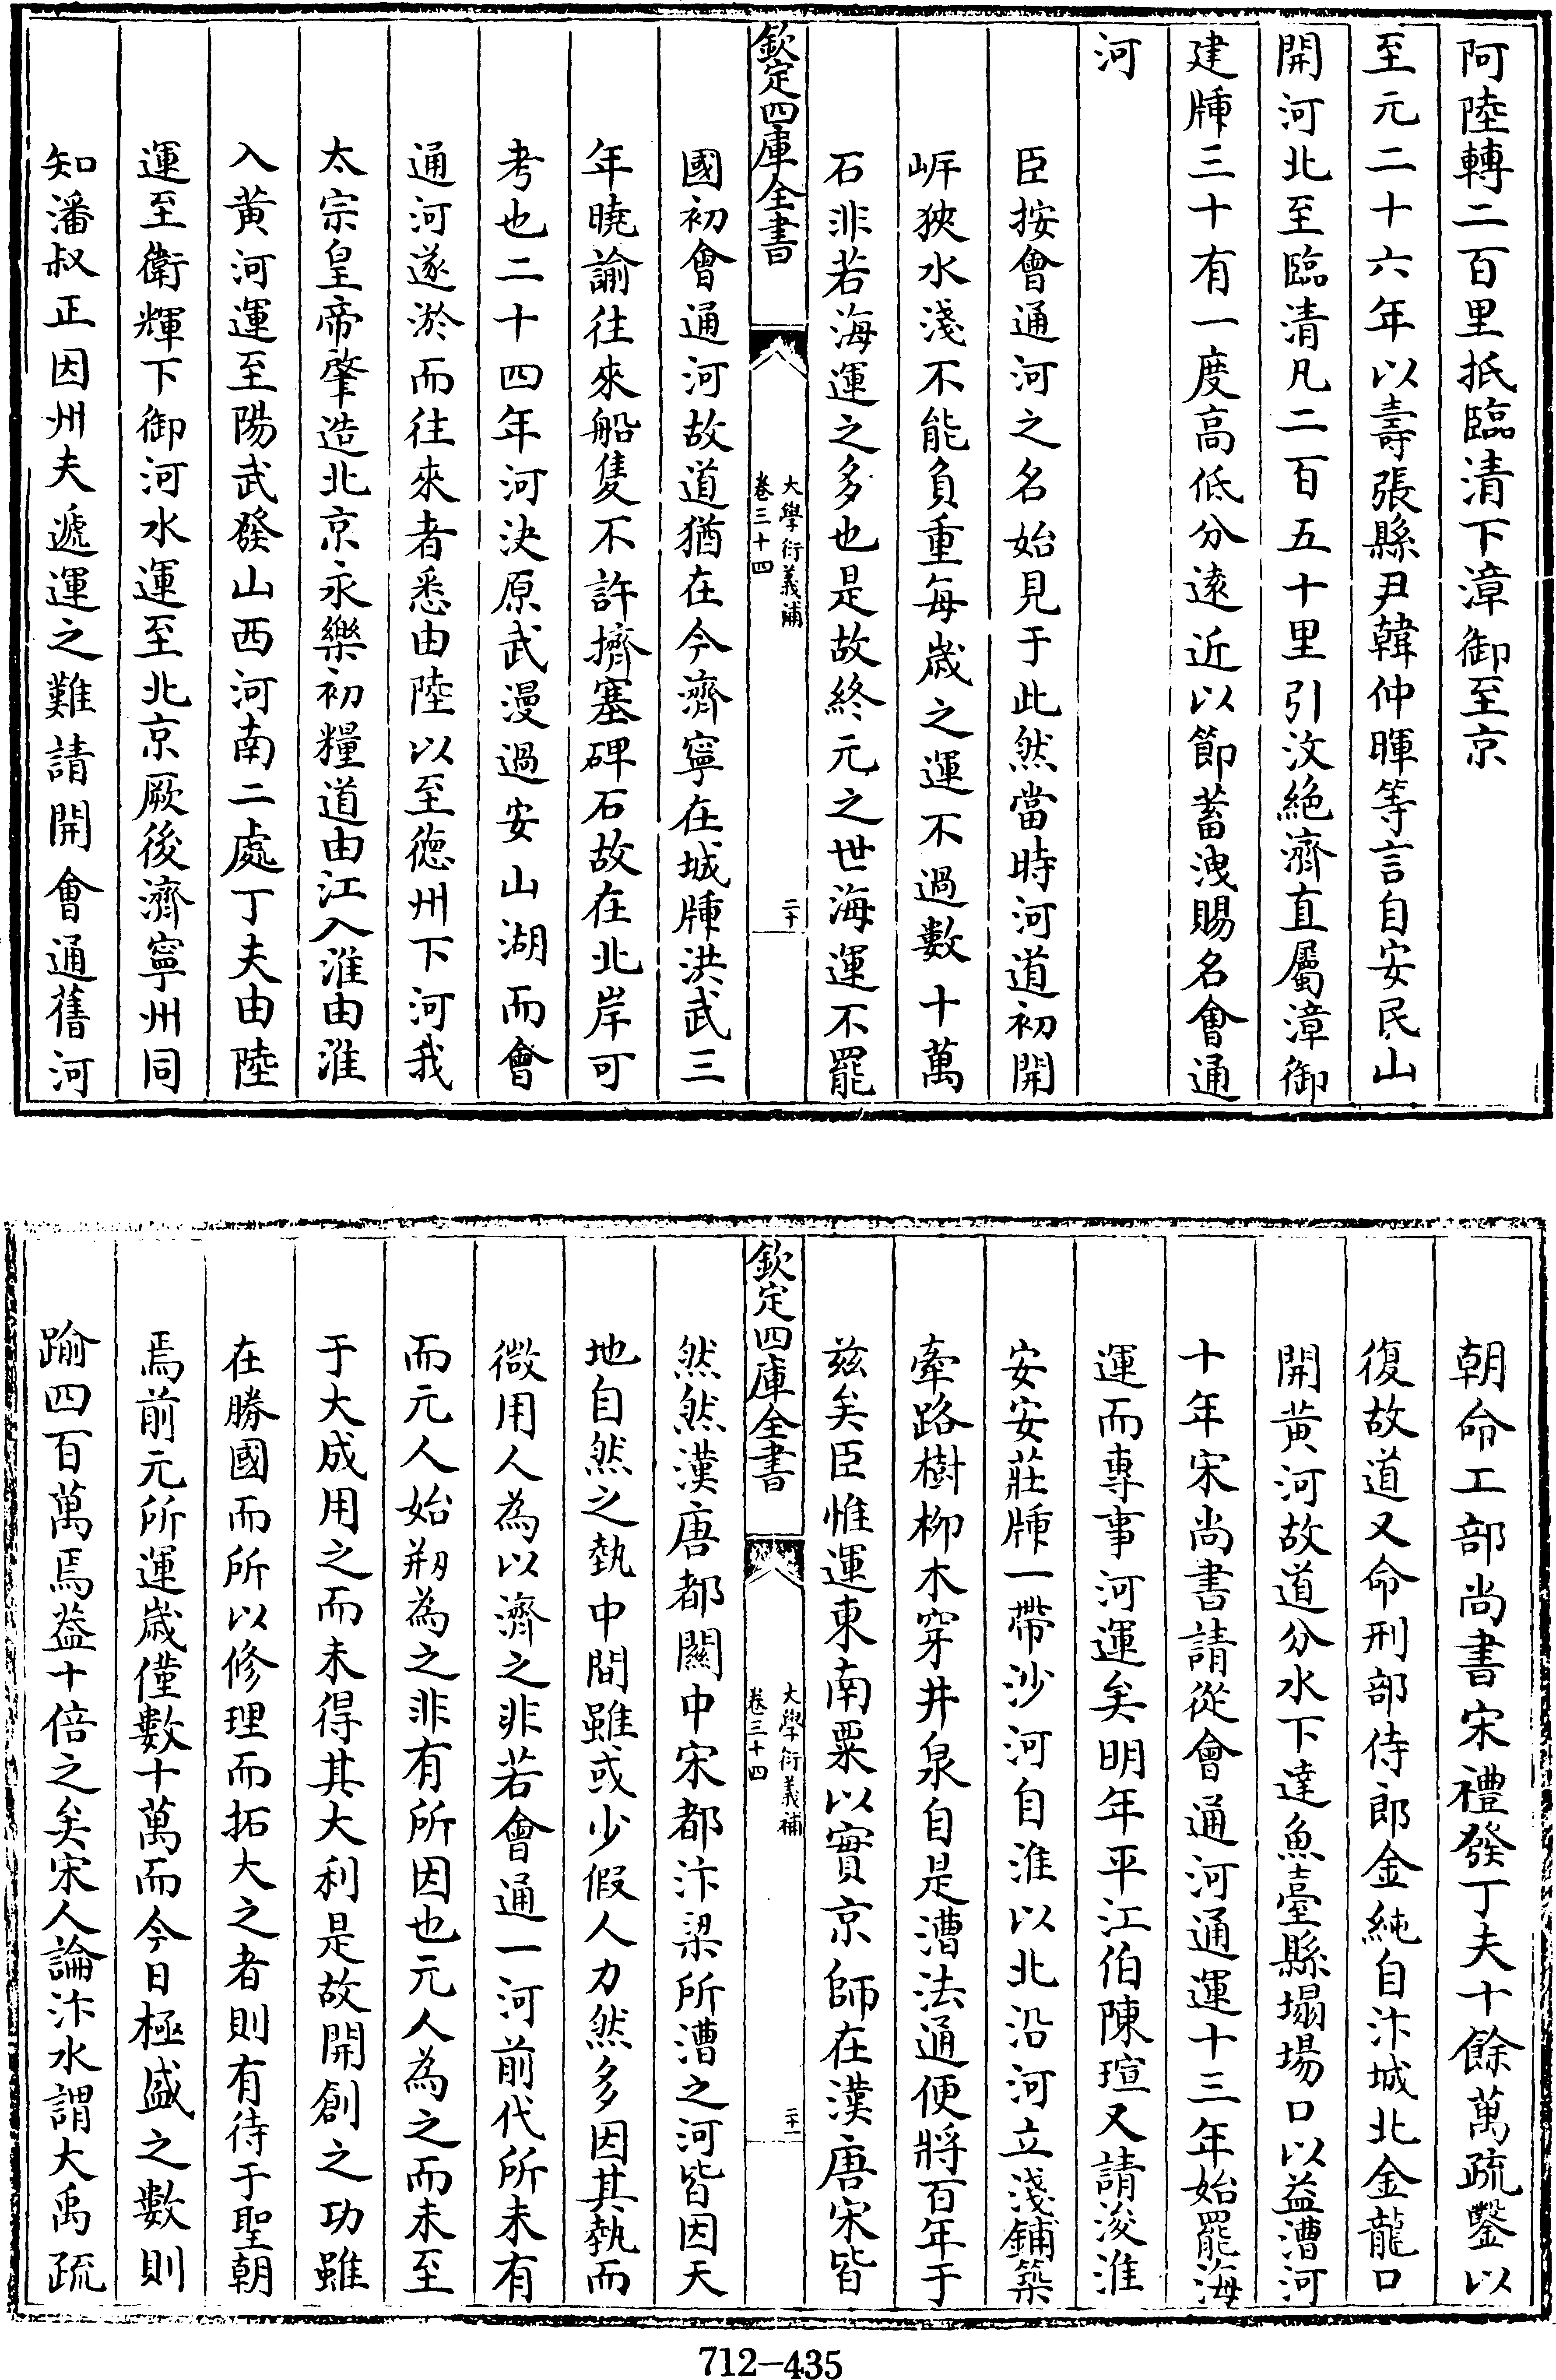 阿陸轉二百里抵臨清下漳御至京
至元二十六年以壽張縣尹韓仲暉等言自安民山
開河北至臨清凡二百五十里引汶絶濟直屬漳御
建牐三十有一度髙低分逺近以節蓄洩賜名㑹通
河
臣按㑹通河之名始見于此然當時河道初開
岍狹水淺不能負重每嵗之運不過數十萬
石非若海運之多也是故終元之世海運不罷
欽定四庫全書
大學衍義補
卷三十四
二十
國初㑹通河故道猶在今濟寧在城牐洪武三
年曉諭往來船隻不許擠塞碑石故在北岸可
考也二十四年河決原武漫過安山湖而㑹
通河遂淤而往來者悉由陸以至徳州下河我
太宗皇帝肇造北京永樂初糧道由江入淮由淮
入黄河運至陽武發山西河南二處丁夫由陸
運至衛輝下御河水運至北京厥後濟寧州同
知潘叔正因州夫遞運之難請開㑹通舊河
朝命工部尚書宋禮發丁夫十餘萬疏鑿以
復故道又命刑部侍郎金純自汴城北金龍口
開黄河故道分水下達魚臺縣塌場口以益漕河
十年宋尚書請從㑹通河通運十三年始罷海
運而專事河運矣明年平江伯陳瑄又請浚淮
安安莊牐一帶沙河自淮以北沿河立淺鋪築
牽路樹柳木穿井泉自是漕法通便將百年于
兹矣臣惟運東南粟以實京師在漢唐宋皆
欽定四庫全書
大學衍義補
卷三十四
二十一
然然漢唐都關中宋都汴梁所漕之河皆因天
地自然之埶中間雖或少假人力然多因其埶而
微用人為以濟之非若㑹通一河前代所未有
而元人始剏為之非有所因也元人為之而未至
于大成用之而未得其大利是故開創之功雖
在勝國而所以修理而拓大之者則有待于聖朝
焉前元所運嵗僅數十萬而今日極盛之數則
踰四百萬焉葢十倍之矣宋人論汴水謂大禹疏
712-435